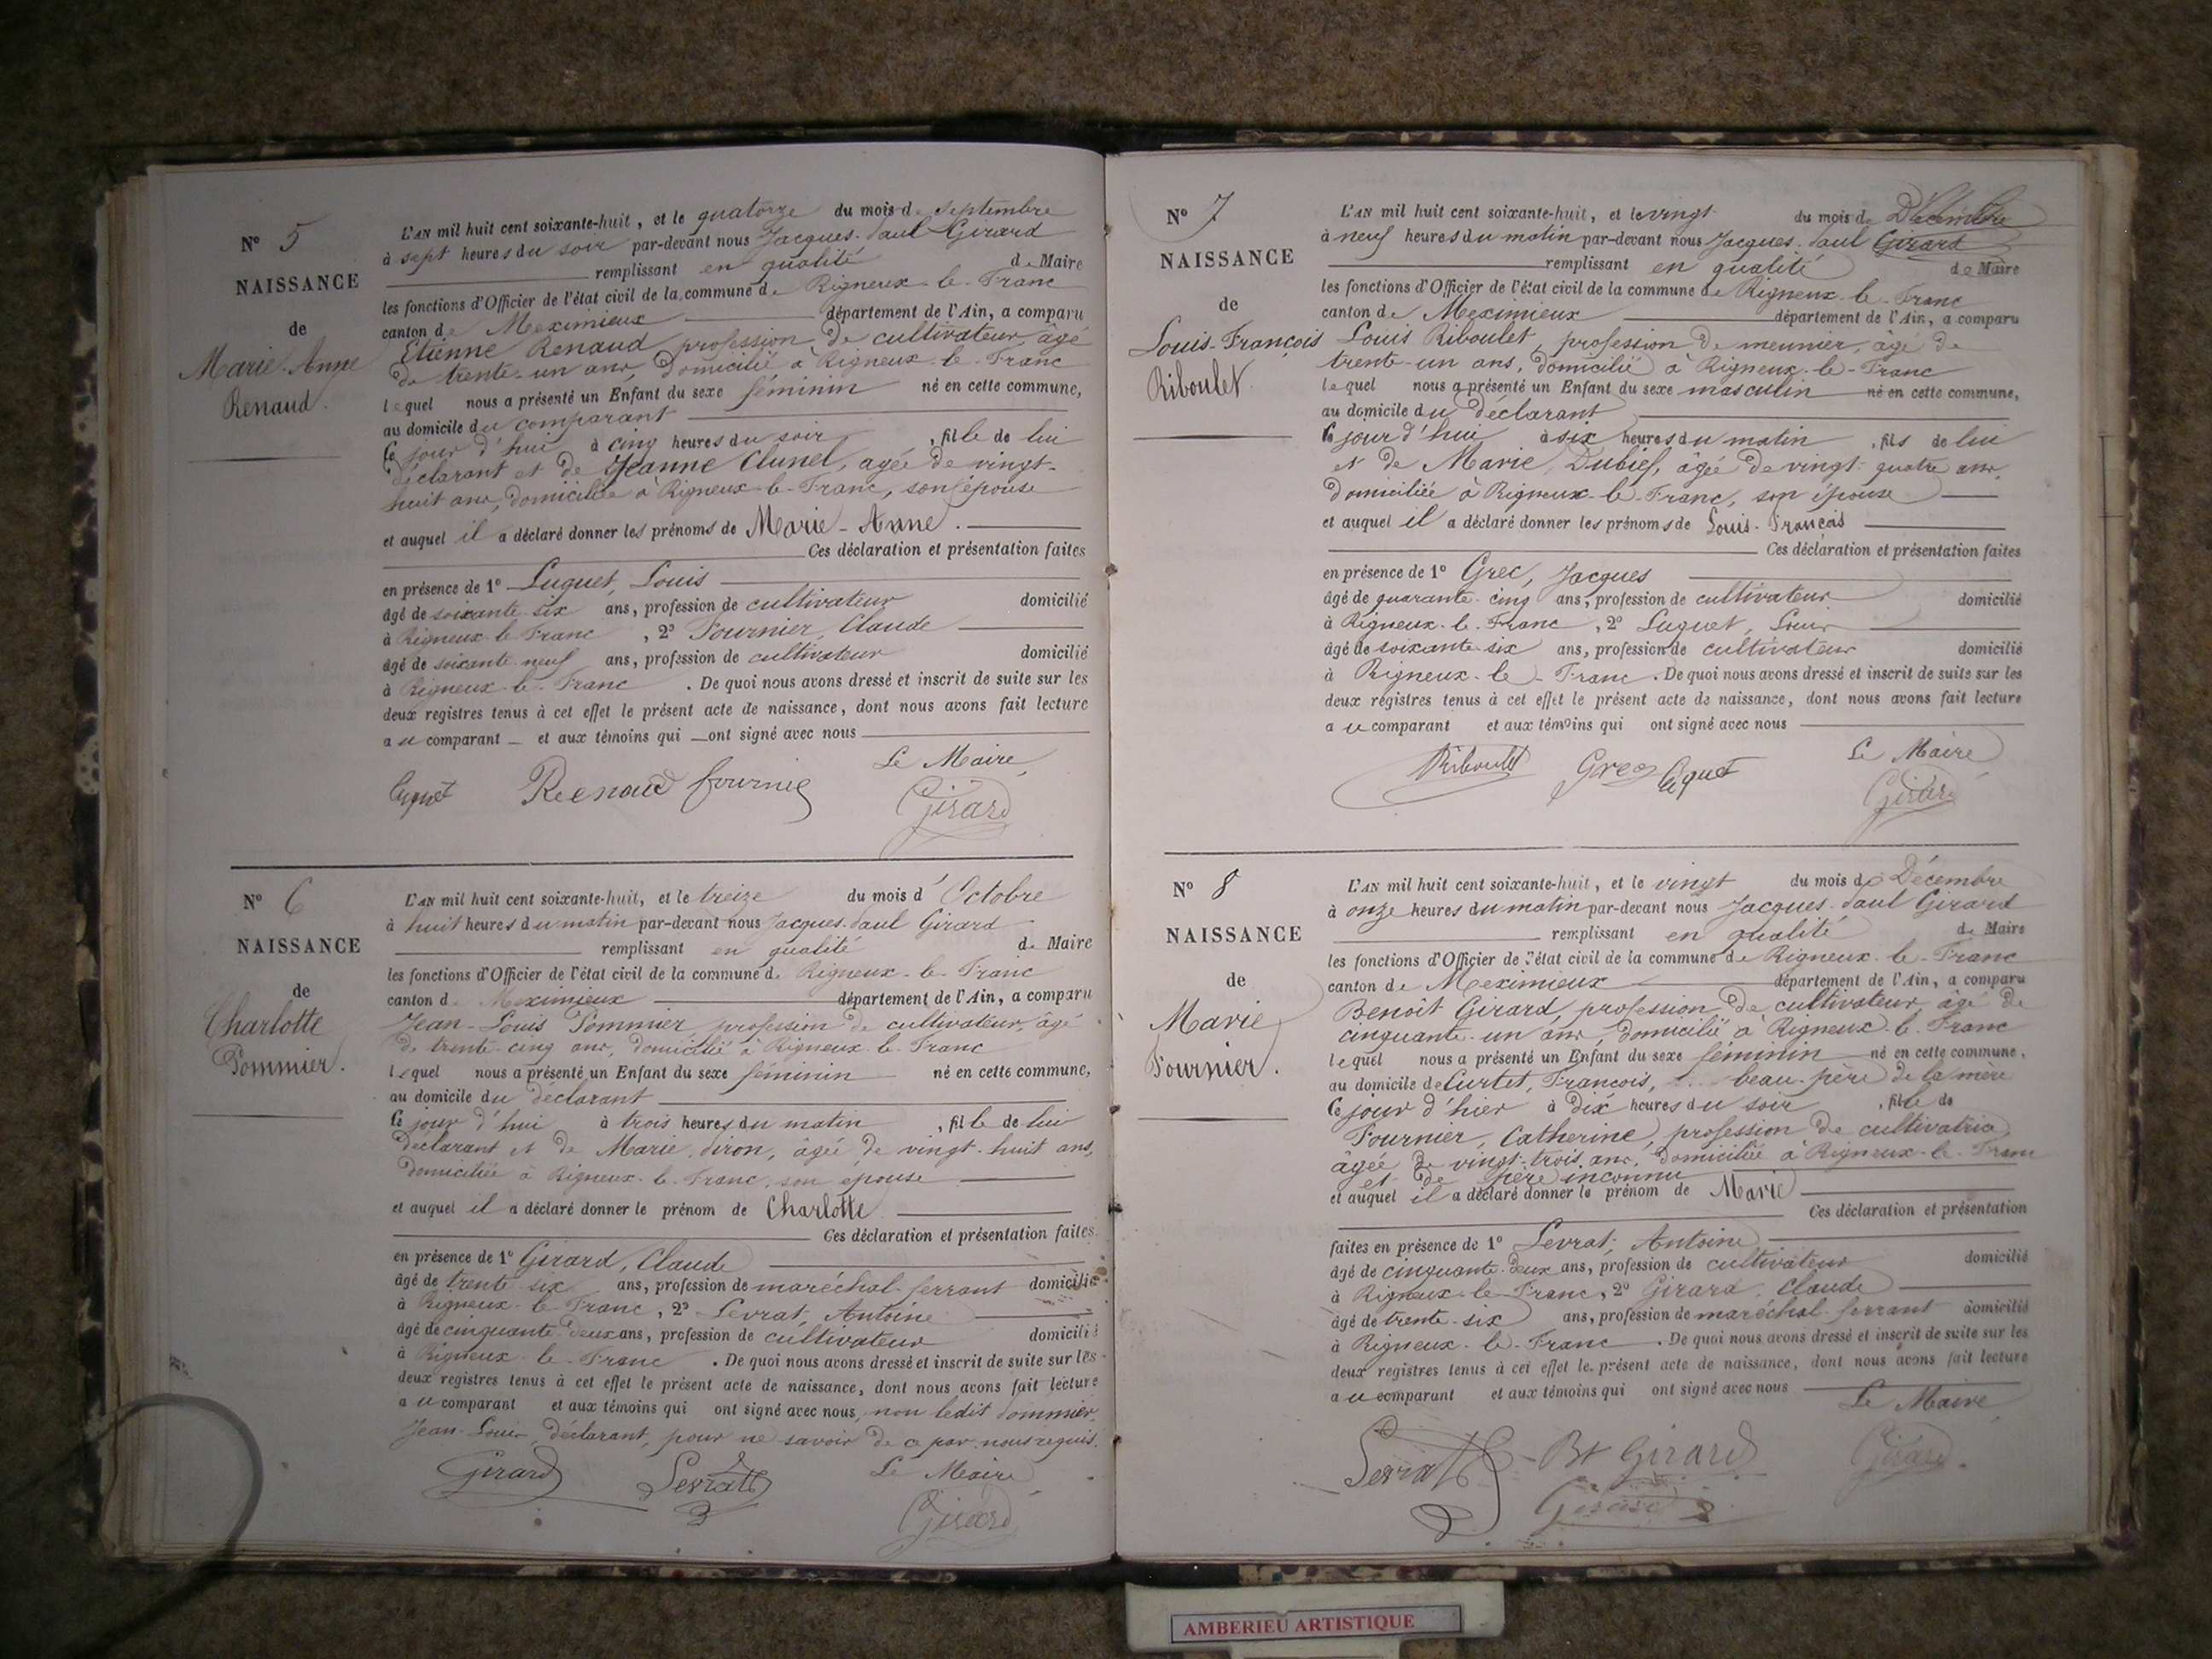 N° 5
NAISSANCE
de
Marie-Anne
Renaud.
L'AN mil huit cent soixante-huit, et le quatorze du mois de septembre
à sept heures du soir par-devant nous Jacques-Paul Girard
remplissant en qualité de Maire
les fonctions d'Officier de l'état civil de la commune de Rigneux-le-Franc
canton de Meximieux département de l'Ain, a comparu
Etienne Renaud, profession de cultivateur, âgé
de trente-un ans, domicilié à Rigneux-le-Franc
lequel nous a présenté un Enfant du sexe féminin né en cette commune,
au domicile du comparant
ce jour d'hui à cinq heures du soir, fille de lui
déclarant et de Jeanne Clunel, agée de vingt-
huit ans, domiciliée à Rigneux-le-Franc, son épouse
et auquel il a déclaré donner les prénoms de Marie-Anne.
Ces déclaration et présentation faites
en présence de 1° Luquet, Louis
âgé de soixante-six ans, profession de cultivateur domicilié
à Rigneux-le-Franc, 2° Fournier, Claude
âgé de soixante-neuf ans, profession de cultivateur domicilié
à Rigneux-le-Franc. De quoi nous avons dressé et inscrit de suite sur les
deux registres tenus à cet effet le présent acte de naissance, dont nous avons fait lecture
au comparant et aux témoins qui ont signé avec nous
Le Maire,
Luquet Renaud fournier Girard
N° 6
NAISSANCE
de
Charlotte
Pommier.
L'AN mil huit cent soixante-huit, et le treize du mois d'Octobre
à huit heures du matin par-devant nous Jacques-Paul Girard
remplissant en qualité de Maire
les fonctions d'Officier de l'état civil de la commune de Rigneux-le-Franc
canton de Meximieux département de l'Ain, a comparu
Jean-Louis Pommier, profession de cultivateur, âgé
de trente-cinq ans, domicilié à Rigneux-le-Franc
lequel nous a présenté un Enfant du sexe féminin né en cette commune,
au domicile du déclarant
ce jour d'hui à trois heures du matin, fille de lui
déclarant et de Marie Piron, âgée de vingt-huit ans,
domiciliée à Rigneux-le-Franc, son épouse
et auquel il a déclaré donner le prénom de Charlotte
Ces déclaration et présentation faites
en présence de 1° Girard, Claude
âgé de trente-six ans, profession de maréchal-ferrant domicilié
à Rigneux-le-Franc, 2° Levrat, Antoine
âgé de cinquante-deux ans, profession de cultivateur domicilié
à Rigneux-le-Franc. De quoi nous avons dressé et inscrit de suite sur les
deux registres tenus à cet effet le présent acte de naissance, dont nous avons fait lecture
au comparant et aux témoins qui ont signé avec nous, non ledit Pommier,
Jean-Louis, déclarant, pour ne savoir de ce par nous requis.
Le Maire
Girard Levrat Girard
N° 7
NAISSANCE
de
Louis-François
Riboulet.
L'AN mil huit cent soixante-huit, et le vingt du mois de Décembre
à neuf heures du matin par-devant nous Jacques-Paul Girard
remplissant en qualité de Maire
les fonctions d'Officier de l'état civil de la commune de Rigneux-le-Franc
canton de Meximieux département de l'Ain, a comparu
Louis Riboulet, profession de meunier, âgé de
trente-un ans, domicilié à Rigneux-le-Franc
lequel nous a présenté un Enfant du sexe masculin né en cette commune,
au domicile du déclarant
ce jour d'hui à six heures du matin, fils de lui
et de Marie Dubief, âgée de vingt-quatre ans,
domiciliée à Rigneux-le-Franc, son épouse
et auquel il a déclaré donner les prénoms de Louis-François
Ces déclaration et présentation faites
en présence de 1° Grec, Jacques
âgé de quarante-cinq ans, profession de cultivateur domicilié
à Rigneux-le-Franc, 2° Luquet, Louis
âgé de soixante-six ans, profession de cultivateur domicilié
à Rigneux-le-Franc. De quoi nous avons dressé et inscrit de suite sur les
deux registres tenus à cet effet le présent acte de naissance, dont nous avons fait lecture
au comparant et aux témoins qui ont signé avec nous
Le Maire
Riboulet Grec Luquet Girard
N° 8
NAISSANCE
de
Marie
Fournier.
L'AN mil huit cent soixante-huit, et le vingt du mois de Décembre
à onze heures du matin par-devant nous Jacques-Paul Girard
remplissant en qualité de Maire
les fonctions d'Officier de l'état civil de la commune de Rigneux-le-Franc
canton de Meximieux département de l'Ain, a comparu
Benoît Girard, profession de cultivateur, âgé de
cinquante-un ans, domicilié à Rigneux-le-Franc
lequel nous a présenté un Enfant du sexe féminin né en cette commune,
au domicile de Curtet, François, beau-père de la mère
ce jour d'hier à dix heures du soir, fille de
Fournier, Catherine, profession de cultivatrice,
âgée de vingt-trois ans, domiciliée à Rigneux-le-Franc
et de père inconnu
et auquel il a déclaré donner le prénom de Marie
Ces déclaration et présentation
faites en présence de 1° Levrat, Antoine
âgé de cinquante-deux ans, profession de cultivateur domicilié
à Rigneux-le-Franc, 2° Girard, Claude
âgé de trente-six ans, profession de maréchal-ferrant domicilié
à Rigneux-le-Franc. De quoi nous avons dressé et inscrit de suite sur les
deux registres tenus à cet effet le présent acte de naissance, dont nous avons fait lecture
au comparant et aux témoins qui ont signé avec nous
Le Maire
Levrat Bt Girard Girard
Girard
AMBERIEU ARTISTIQUE